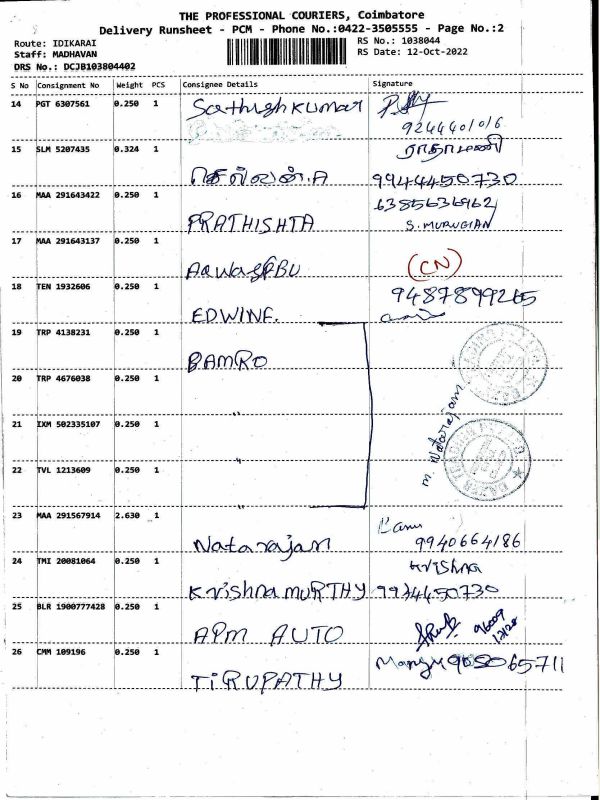 THE PROFESSIONAL COURIERS, Coimbatore
Delivery Runsheet - PCM - Phone No.:0422-3505555 - Page No.:2
Route: IDIKARAI
Staff: MADHAVAN
DRS No.: DCJB103804402
RS No.: 1038044
RS Date: 12-Oct-2022
S No Consignment No Weight PCS Consignee Details Signature
14 PGT 6307561 0.250 1 Sathishkumar
9244401016
15 SLM 5207435 0.324 1 ராதாமணி
செல்வன்.A 9944450730
16 MAA 291643422 0.250 1 6385636962
PRATHISHTA S. MURUGAN
17 MAA 291643137 0.250 1
(CN)
18 TEN 1932606 0.250 1 9487899265
EDWINE.
19 TRP 4138231 0.250 1
BAMRO
20 TRP 4676038 0.250 1
"
21 IXM 502335107 0.250 1
"
22 TVL 1213609 0.250 1
"
M. Natarajan
23 MAA 291567914 2.630 1
Natarajan 9940664186
24 TMI 20081064 0.250 1 Krishna
Krishna MURTHY 9974450730
25 BLR 1900777428 0.250 1
APM AUTO
26 CMM 109196 0.250 1
TIRUPATHY